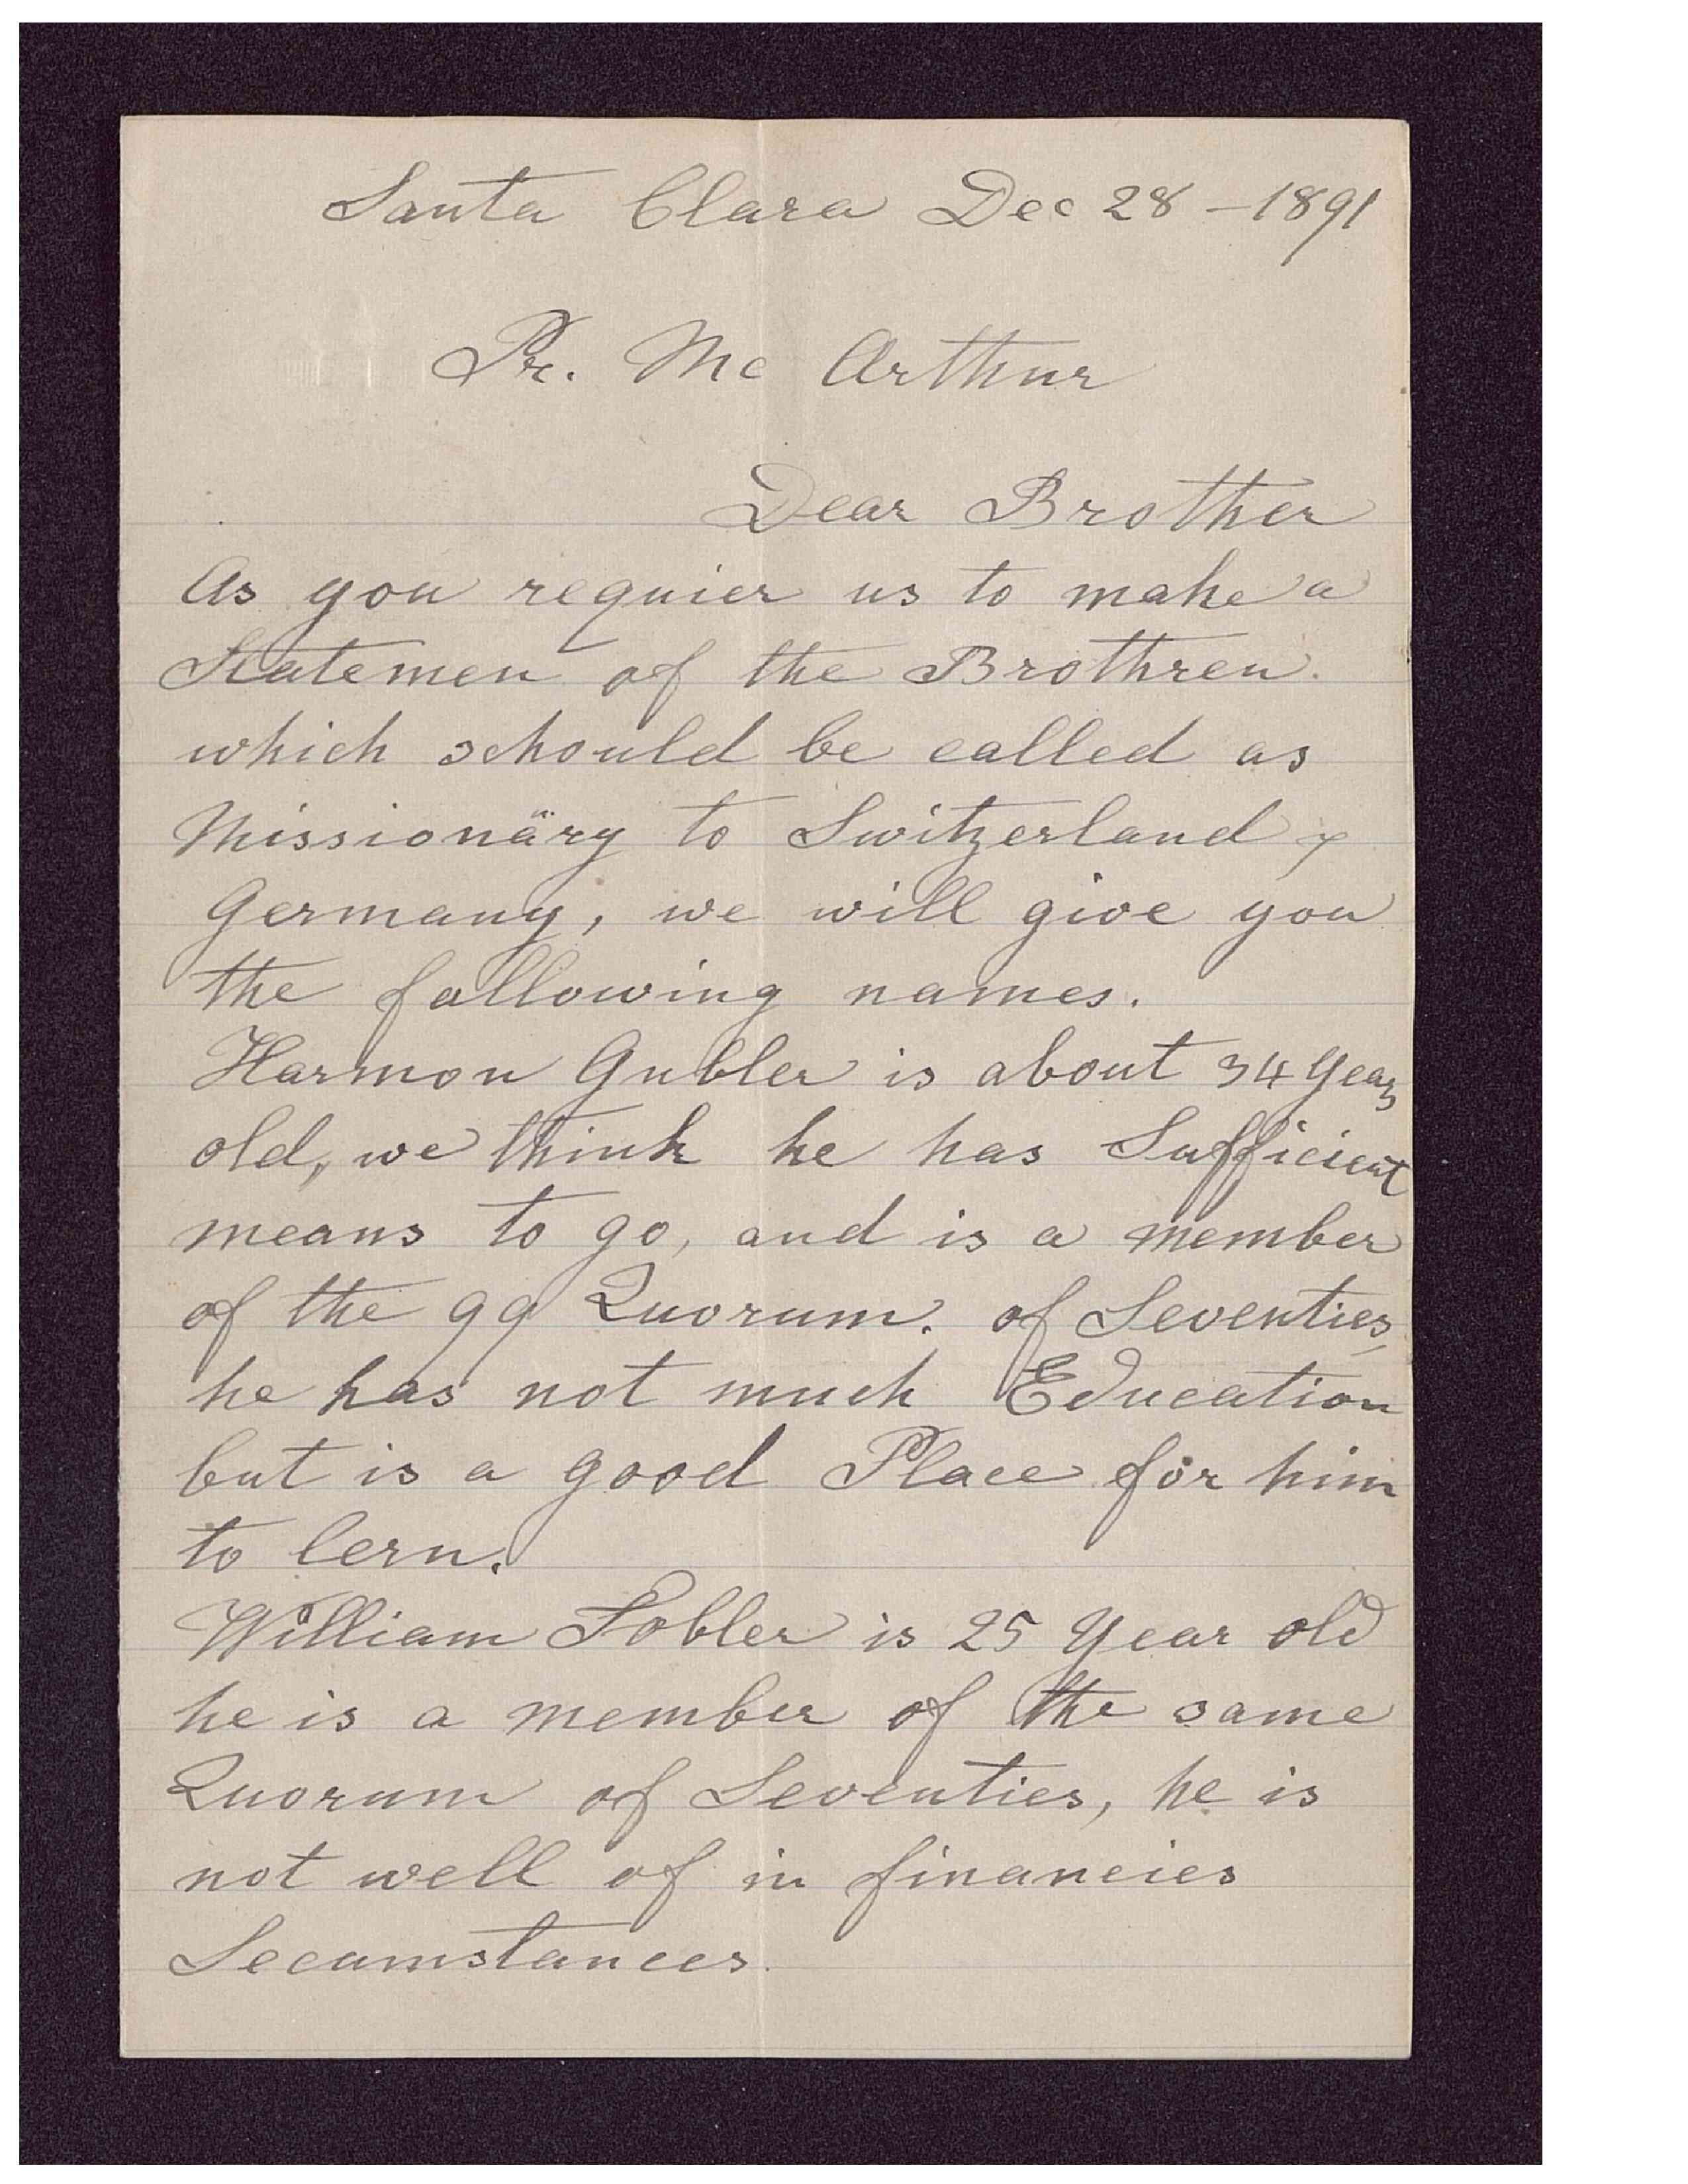 Santa Clara Dec 28 – 1891
Pr. Mc Arthur
Dear Brother
As you requier us to make a
Statemen of the Brothren.
which schould be called as
Missionäry to Switzerland &
Germany, we will give you
the following names.
Harmon Gubler is about 34 Years
old, we think he has Sufficient
means to go, and is a member
of the 99 Quorum. of Seventies,
he has not much Education
but is a good Place for him
to lern.
William Tobler is 25 Year old
he is a member of the same
Quorum of Seventies, he is
not well of in financies
Secumstances.